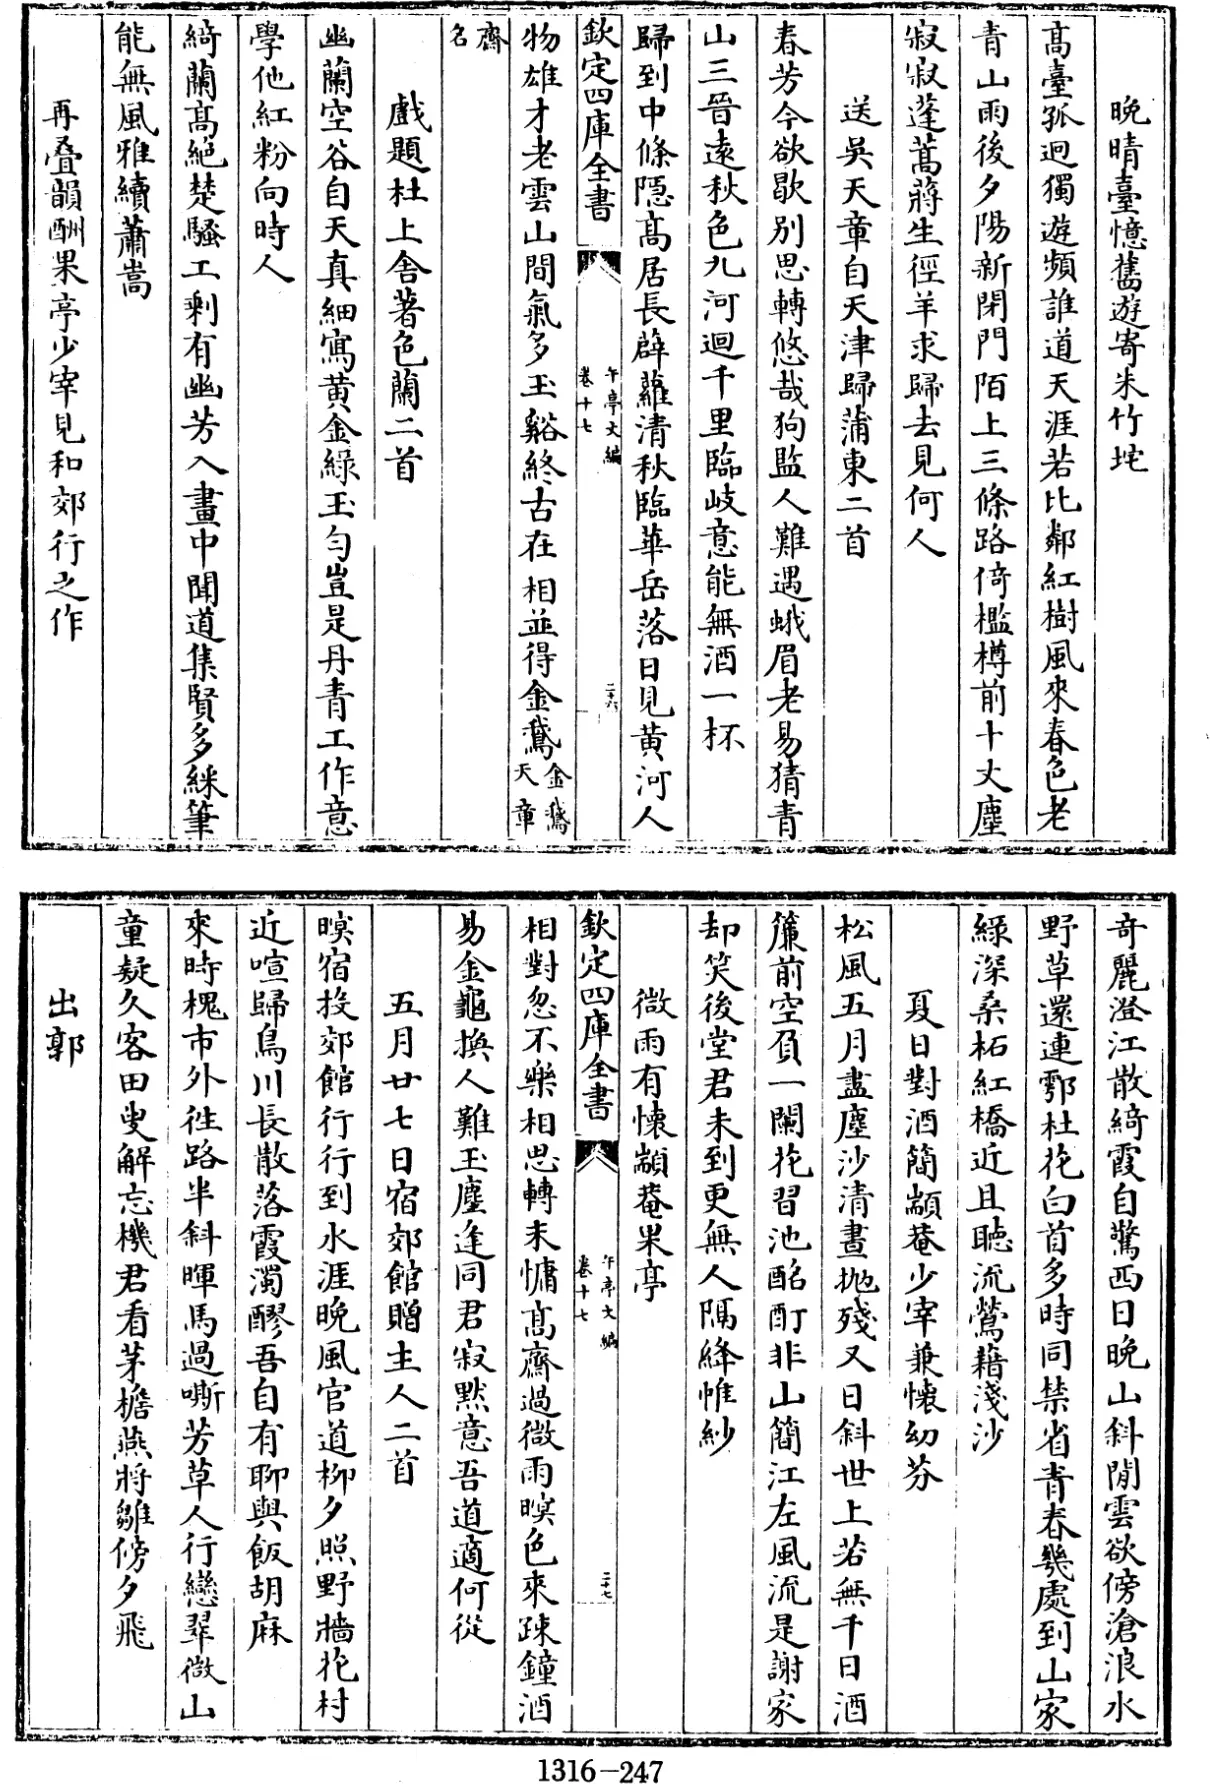 晚晴臺憶舊遊寄朱竹垞
髙臺孤迥獨遊頻誰道天涯若比鄰紅樹風來春色老
青山雨後夕陽新閉門陌上三條路倚檻樽前十丈塵
寂寂蓬蒿蔣生徑羊求歸去見何人
送吳天章自天津歸蒲東二首
春芳今欲歇别思轉悠哉狗監人難遇蛾眉老易猜青
山三晉遠秋色九河迴千里臨岐意能無酒一杯
歸到中條隠髙居長薜蘿清秋臨華岳落日見黄河人
欽定四庫全書
午亭文編
卷十七
二十六
物雄才老雲山間氣多玉谿終古在相並得金鵞金鵞天章
齋名
戲題杜上舍著色蘭二首
幽蘭空谷自天真細寫黄金綠玉勻豈是丹青工作意
學他紅粉向時人
綺蘭髙絶楚騷工剩有幽芳入畫中聞道集賢多綵筆
能無風雅續蕭嵩
再疊韻酬果亭少宰見和郊行之作
奇麗澄江散綺霞自驚西日晚山斜閒雲欲傍滄浪水
野草還連鄠杜花白首多時同禁省青春幾處到山家
綠深桑柘紅橋近且聽流鶯藉淺沙
夏日對酒簡顓菴少宰兼懐幼芬
松風五月盡塵沙清晝抛殘又日斜世上若無千日酒
簾前空負一闌花習池酩酊非山簡江左風流是謝家
却笑後堂君未到更無人隔絳帷紗
微雨有懐顓菴果亭
欽定四庫全書
午亭文編
卷十七
二十七
相對忽不樂相思轉未慵髙齋過微雨暝色來踈鐘酒
易金龜換人難玉塵逢同君寂黙意吾道適何從
五月廿七日宿郊館贈主人二首
暝宿投郊館行行到水涯晚風官道栁夕照野牆花村
近喧歸鳥川長散落霞濁醪吾自有聊與飯胡麻
來時槐市外徃路半斜暉馬過嘶芳草人行戀翠微山
童疑久客田叟解忘機君看茅檐燕將雛傍夕飛
出郭
1316-247